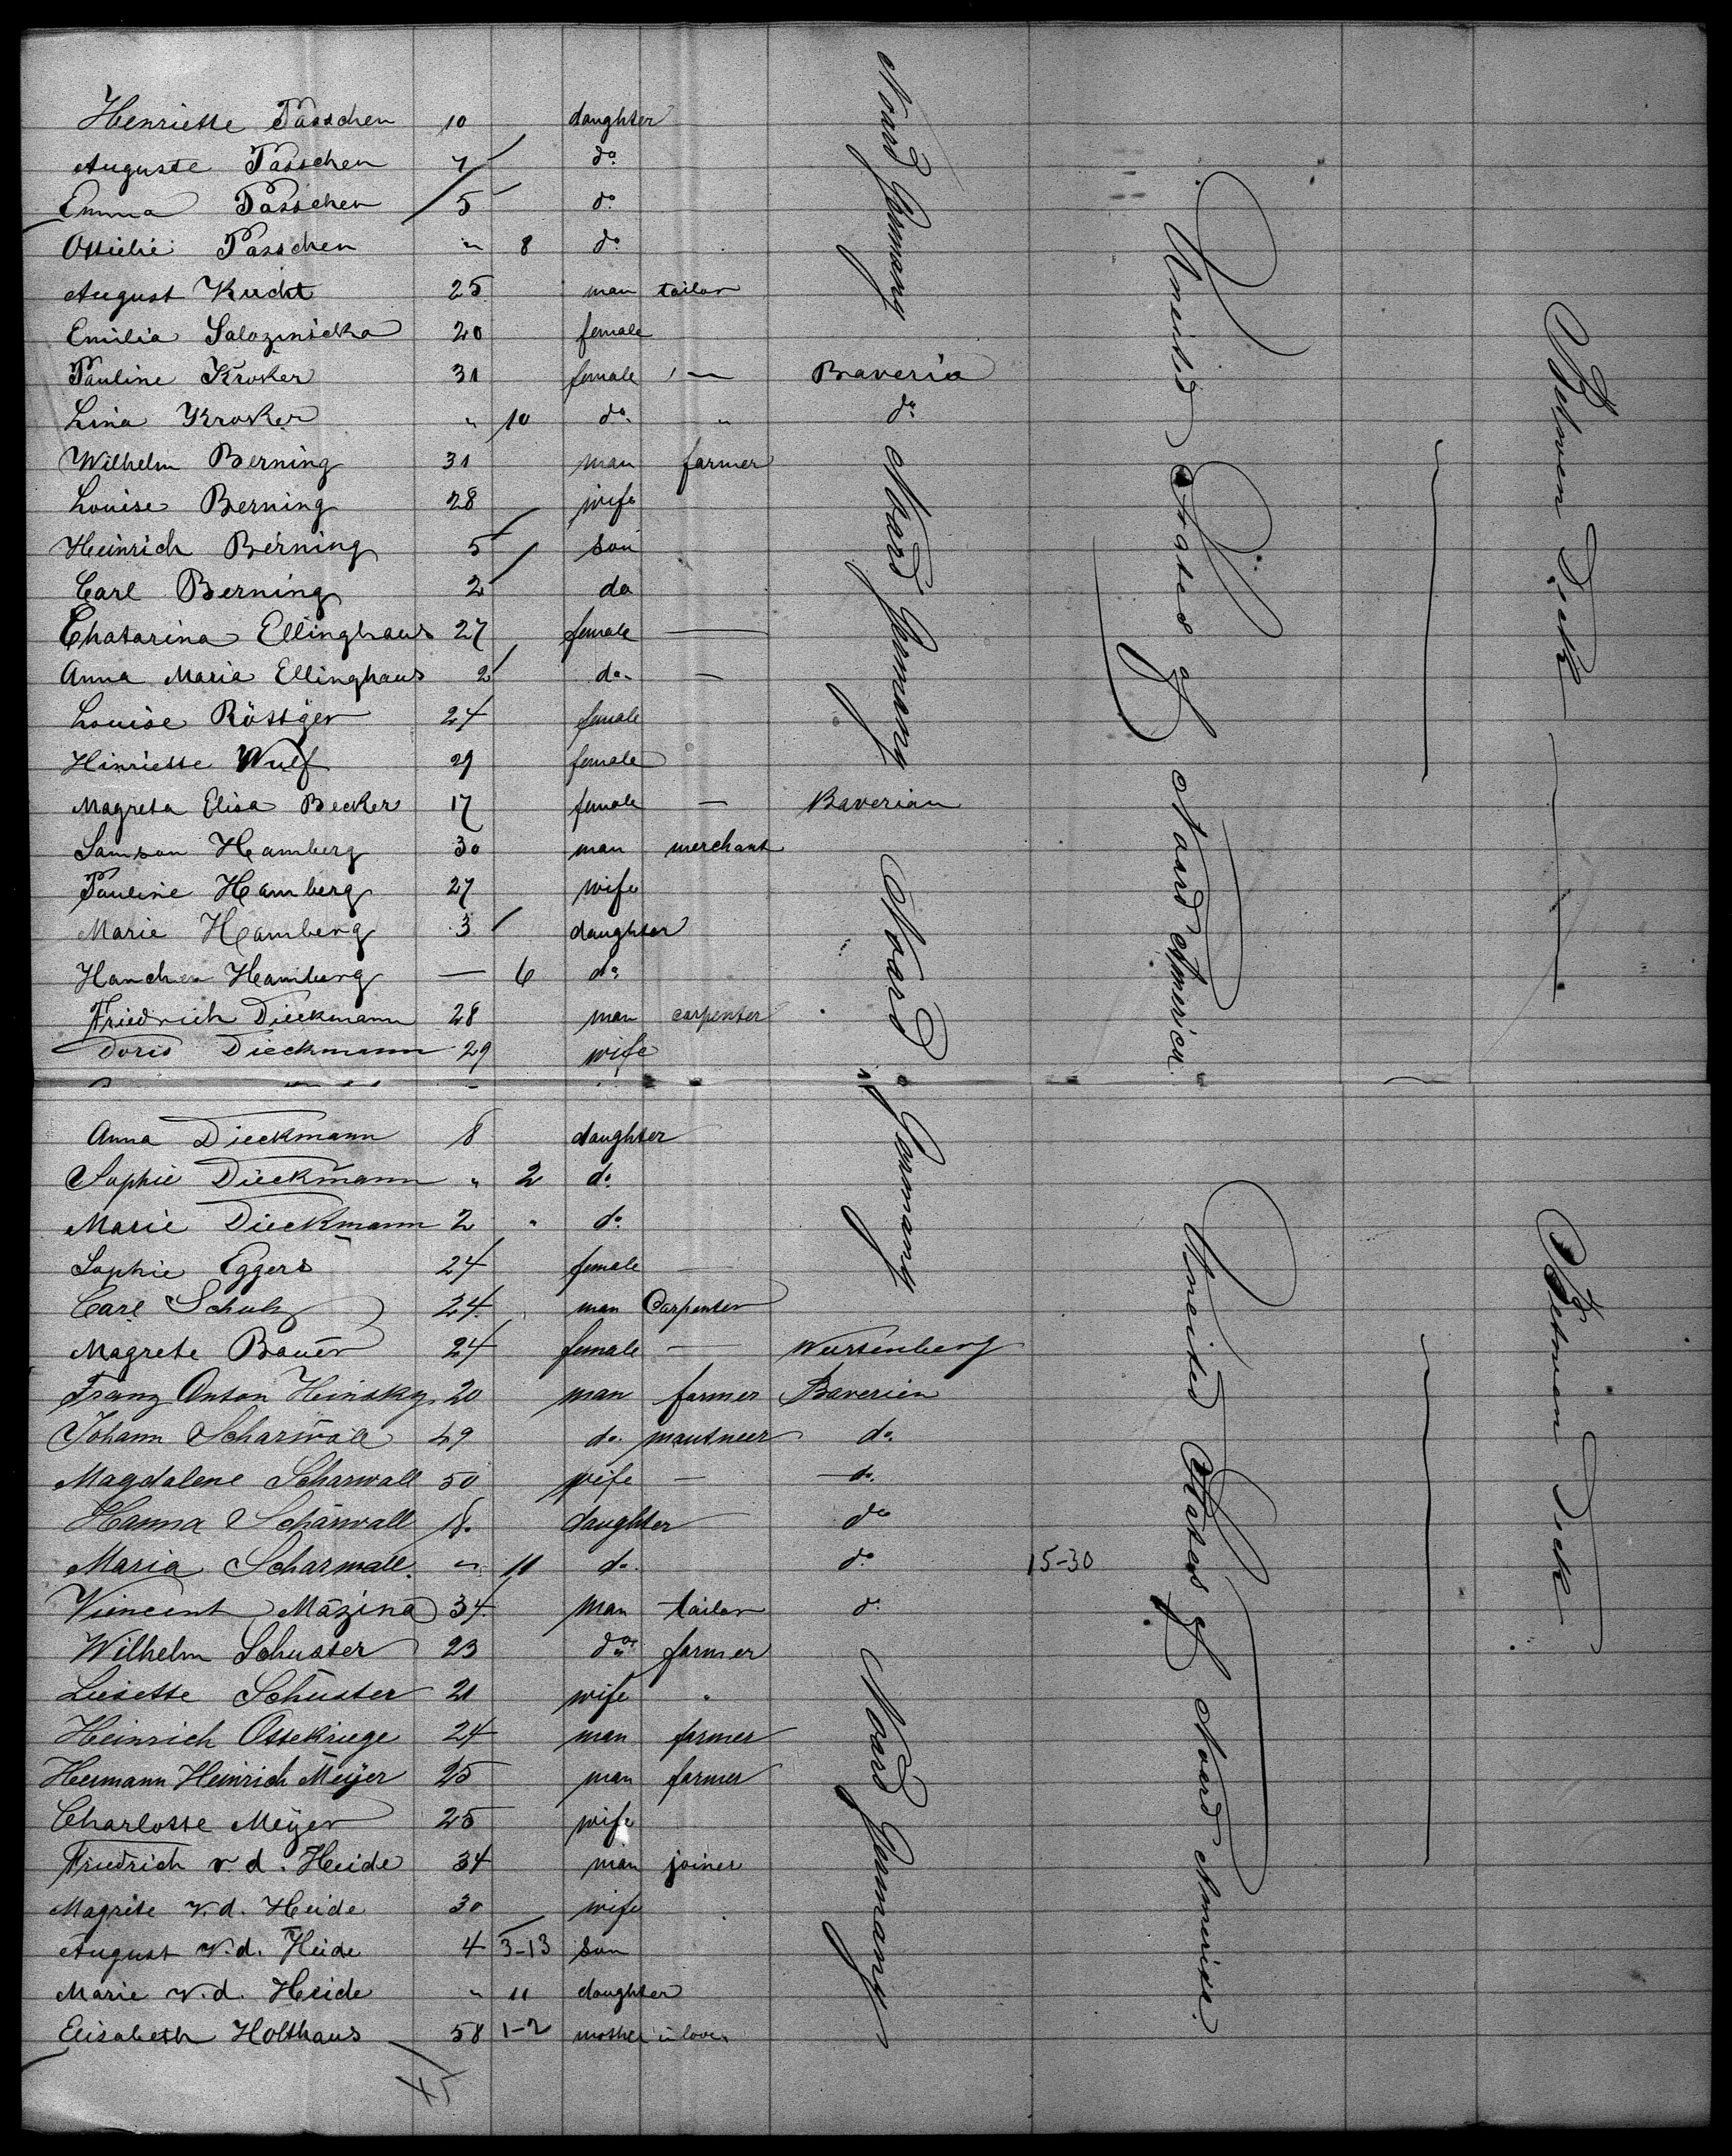 Henriette Passchen 10 daughter
Auguste Passchen 7 do
Emma Passchen 5 do
Ottielie Passchen " 8 do
August Kucht 25 man tailor
Emilia 20 female
Noard Germany
Pauline Kroker 31 female — Baveria
Lina Kroker " 10 do " do
Wilhelm Berning 31 man farmer
Louise Berning 28 wife
Heinrich Berning 5 son
Carl Berning 2 do
Chatarina Ellinghaus 27 female —
Anna Maria Ellinghaus 2 do —
Louise Röttger 24 female
Hinriette Wulf 29 female
Noard Germany
Magreta Elisa Becker 17 female — Baverian
Samson Hamberg 30 man merchant
Pauline Hamberg 27 wife
Marie Hamberg 3 daughter
Hanchen Hamberg — 6 do
Friedrich Dieckmann 28 man carpenter
Doris Dieckmann 29 wife
Uneited States of Noard America
Between Deck
Anna Dieckmann 8 daughter
Sophie Dieckmann " 2 do
Marie Dieckmann 2 " do
Sophie Eggers 24 female —
Carl Schulz 24 man Carpenter
Noard Germany
Magrete Bauer 24 female — Wurtenberg
Franz Anton Heinsky 20 man farmer Baverien
Johann Scharwall 49 do. do.
Magdalene Scharwall 50 wife — do.
Hanna Scharwall 18. daughter do
Maria Scharwall. " 11 do. do 15-30
Viencent Mazina 34. man tailor do
Wilhelm Schuster 23 do farmer
Liesette Schuster 21 wife "
Heinrich Ottekriege 24 man farmer
Hermann Heinrich Meijer 25 man farmer
Charlotte Meijer 25 wife
Friedrich v. d. Heide 34 man joiner
Magrete v. d. Heide 30 wife
August v. d. Heide 4 3-13 son
Marie v. d. Heide " 11 daughter
Elisabeth Holthaus 58 1-2 mother in love
Noard Germany
Uneited States of Noard America.
Between Deck
45